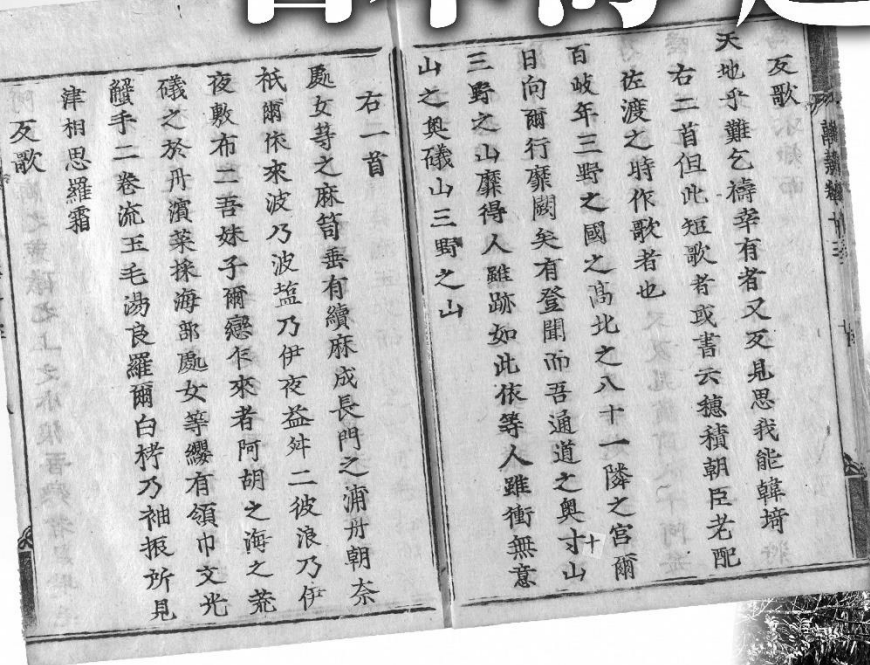 反歌
天地乎難乞禱幸有者又反見思我能韓埼
右二首但此短歌者或書云穗積朝臣老配
佐渡之時作歌者也
百岐年三野之國之髙北之八十一隣之宮爾
日向爾行靡闕矣有登聞而吾通道之奥寸山
三野之山靡得人雖跡如此依等人雖衝無意
山之奥礒山三野之山
右一首
處女䓁之麻笥垂有續麻成長門之浦丹朝奈
祇爾依來波乃波塩乃伊夜益舛二彼浪乃伊
夜敷布二吾妹子爾戀乍來者阿胡之海之荒
礒之於丹濱菜採海部處女等纓有領巾文光
蟹手二卷流玉毛湯良羅爾白栲乃袖振所見
津相思羅霜
反歌